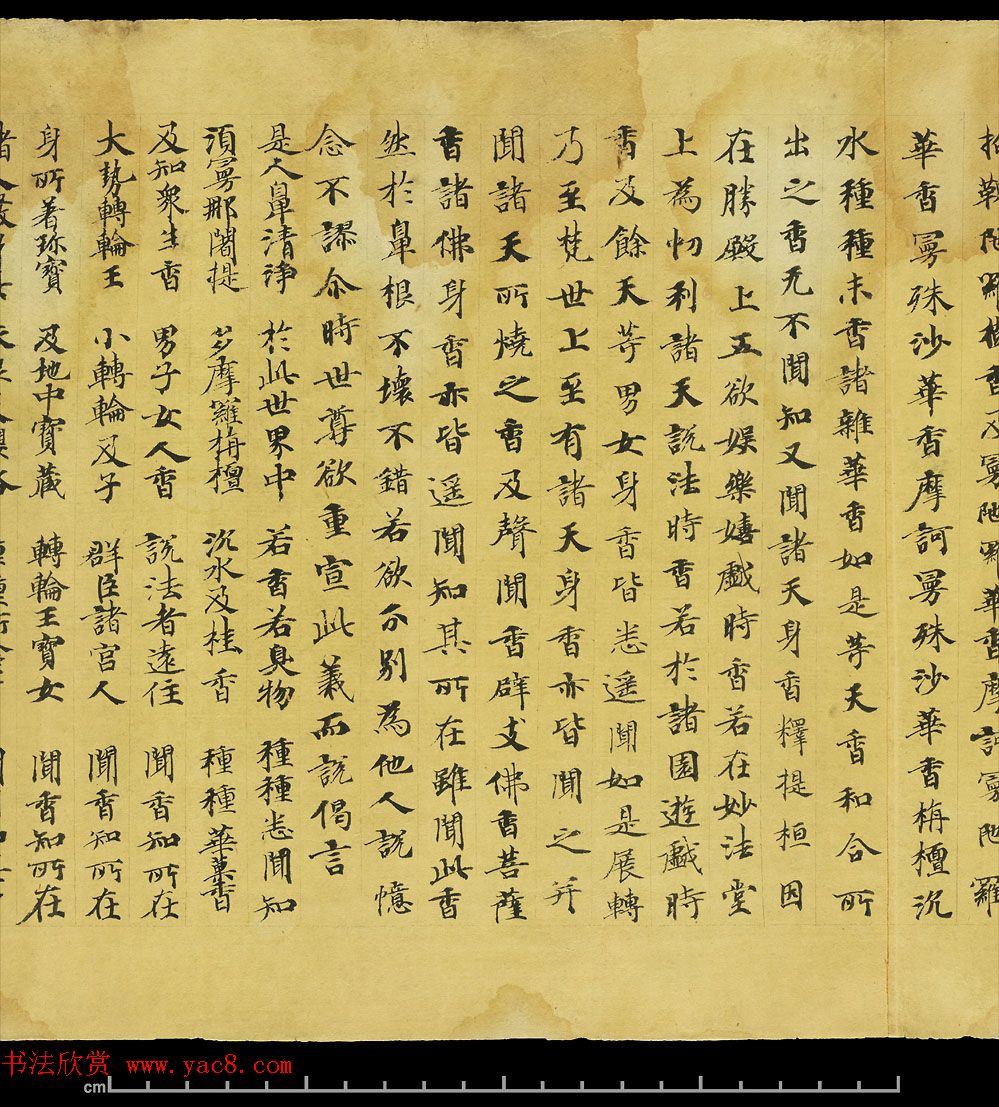 拘鞞陀羅樹香及曼陀羅華香摩訶曼陀羅
華香曼殊沙華香摩訶曼殊沙華香栴檀沉
水種種末香諸雜華香如是等天香和合所
出之香无不聞知又聞諸天身香釋提桓因
在勝殿上五欲娛樂嬉戲時香若在妙法堂
上為忉利諸天說法時香若於諸園遊戲時
香及餘天等男女身香皆悉遥聞如是展轉
乃至梵世上至有諸天身香亦皆聞之并
聞諸天所燒之香及聲聞香辟支佛香菩薩
香諸佛身香亦皆遥聞知其所在雖聞此香
然於鼻根不壞不錯若欲分別為他人說憶
念不謬尒時世尊欲重宣此義而說偈言
是人鼻清淨 於此世界中 若香若臭物 種種悉聞知
須曼那闍提 多摩羅栴檀 沉水及桂香 種種華菓香
及知衆生香 男子女人香 說法者遠住 聞香知所在
大勢轉輪王 小轉輪及子 群臣諸宮人 聞香知所在
身所著珎寶 及地中寶藏 轉輪王寶女 聞香知所在
书法欣赏 www.yac8.com
cm